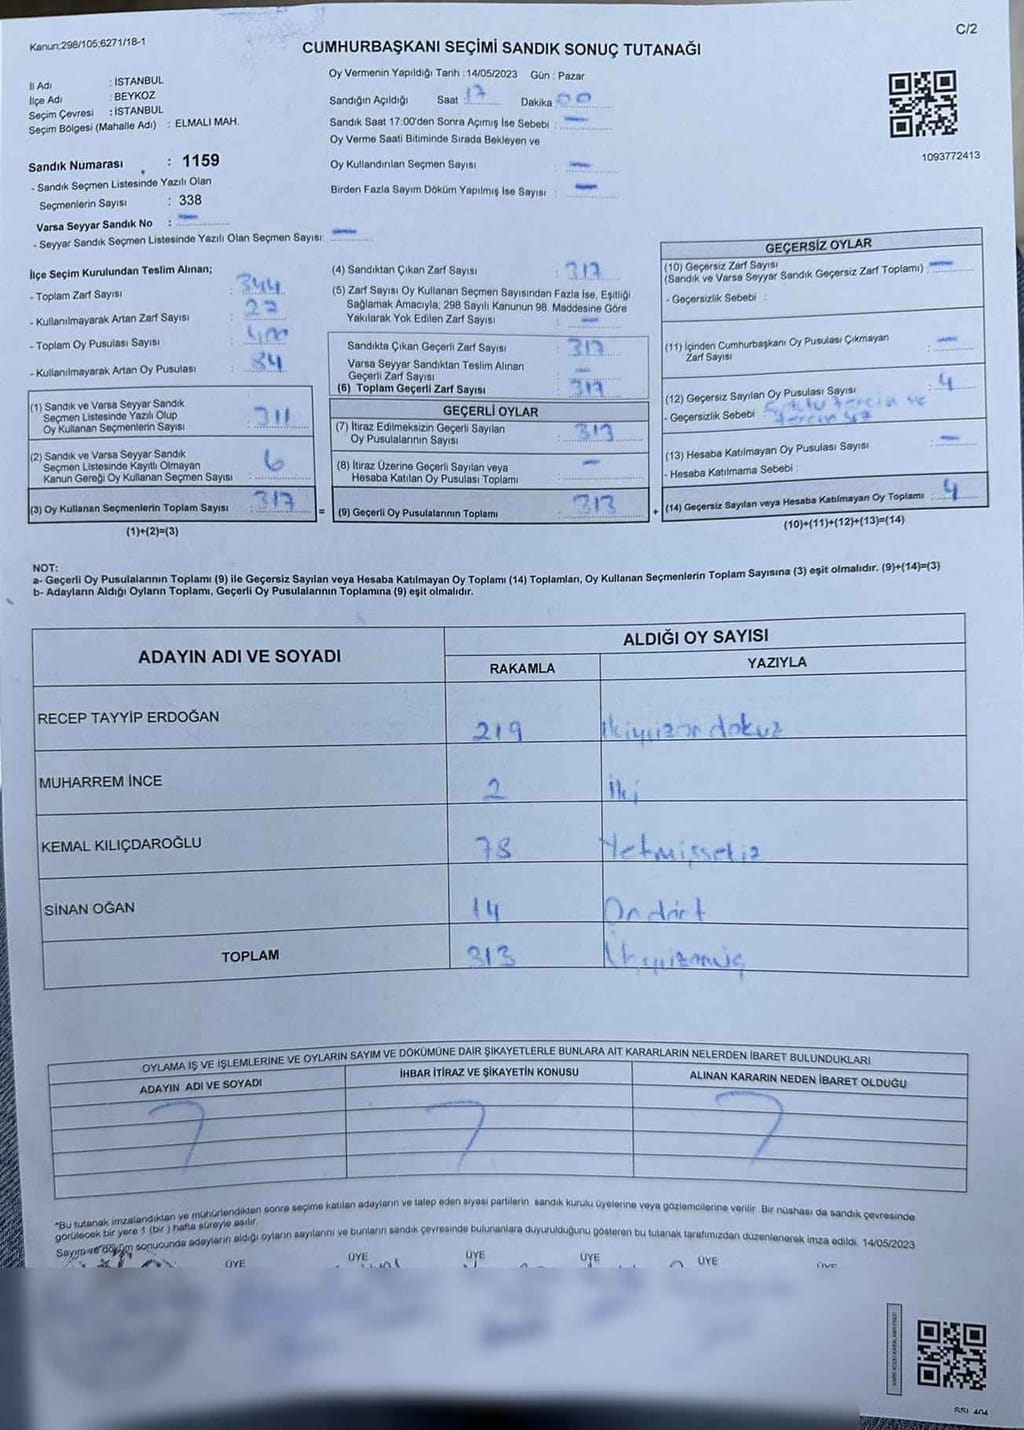 Kanun;298/105;6271/18-1
C/2
CUMHURBAŞKANI SEÇİMİ SANDIK SONUÇ TUTANAĞI
İl Adı : İSTANBUL
İlçe Adı : BEYKOZ
Seçim Çevresi : İSTANBUL
Seçim Bölgesi (Mahalle Adı) : ELMALI MAH.
Sandık Numarası : 1159
- Sandık Seçmen Listesinde Yazılı Olan
Seçmenlerin Sayısı : 338
Varsa Seyyar Sandık No :
- Seyyar Sandık Seçmen Listesinde Yazılı Olan Seçmen Sayısı:
Oy Vermenin Yapıldığı Tarih :14/05/2023 Gün : Pazar
Sandığın Açıldığı Saat 17 Dakika 00
Sandık Saat 17:00'den Sonra Açımış İse Sebebi :
Oy Verme Saati Bitiminde Sırada Bekleyen ve
Oy Kullandırılan Seçmen Sayısı :
Birden Fazla Sayım Döküm Yapılmış İse Sayısı :
1093772413
İlçe Seçim Kurulundan Teslim Alınan;
- Toplam Zarf Sayısı : 344
- Kullanılmayarak Artan Zarf Sayısı : 27
- Toplam Oy Pusulası Sayısı :
- Kullanılmayarak Artan Oy Pusulası : 84
(1) Sandık ve Varsa Seyyar Sandık
Seçmen Listesinde Yazılı Olup
Oy Kullanan Seçmenlerin Sayısı : 311
(2) Sandık ve Varsa Seyyar Sandık
Seçmen Listesinde Kayıtlı Olmayan
Kanun Gereği Oy Kullanan Seçmen Sayısı : 6
(3) Oy Kullanan Seçmenlerin Toplam Sayısı : 317
(1)+(2)=(3)
=
(4) Sandıktan Çıkan Zarf Sayısı : 317
(5) Zarf Sayısı Oy Kullanan Seçmen Sayısından Fazla İse, Eşitliği
Sağlamak Amacıyla, 298 Sayılı Kanunun 98. Maddesine Göre
Yakılarak Yok Edilen Zarf Sayısı :
Sandıkta Çıkan Geçerli Zarf Sayısı : 317
Varsa Seyyar Sandıktan Teslim Alınan
Geçerli Zarf Sayısı :
(6) Toplam Geçerli Zarf Sayısı : 317
GEÇERLİ OYLAR
(7) İtiraz Edilmeksizin Geçerli Sayılan
Oy Pusulalarının Sayısı : 313
(8) İtiraz Üzerine Geçerli Sayılan veya
Hesaba Katılan Oy Pusulası Toplamı :
(9) Geçerli Oy Pusulalarının Toplamı : 313
+
GEÇERSİZ OYLAR
(10) Geçersiz Zarf Sayısı
(Sandık ve Varsa Seyyar Sandık Geçersiz Zarf Toplamı) :
- Geçersizlik Sebebi :
(11) İçinden Cumhurbaşkanı Oy Pusulası Çıkmayan
Zarf Sayısı :
(12) Geçersiz Sayılan Oy Pusulası Sayısı : 4
- Geçersizlik Sebebi :
(13) Hesaba Katılmayan Oy Pusulası Sayısı :
- Hesaba Katılmama Sebebi :
(14) Geçersiz Sayılan veya Hesaba Katılmayan Oy Toplamı : 4
(10)+(11)+(12)+(13)=(14)
NOT:
a- Geçerli Oy Pusulalarının Toplamı (9) ile Geçersiz Sayılan veya Hesaba Katılmayan Oy Toplamı (14) Toplamları, Oy Kullanan Seçmenlerin Toplam Sayısına (3) eşit olmalıdır. (9)+(14)=(3)
b- Adayların Aldığı Oyların Toplamı, Geçerli Oy Pusulalarının Toplamına (9) eşit olmalıdır.
ADAYIN ADI VE SOYADI
ALDIĞI OY SAYISI
RAKAMLA YAZIYLA
RECEP TAYYİP ERDOĞAN 219 İkiyüzon dokuz
MUHARREM İNCE 2 İki
KEMAL KILIÇDAROĞLU 78 Yetmişsekiz
SİNAN OĞAN 14 On dört
TOPLAM 313
OYLAMA İŞ VE İŞLEMLERİNE VE OYLARIN SAYIM VE DÖKÜMÜNE DAİR ŞİKAYETLERLE BUNLARA AİT KARARLARIN NELERDEN İBARET BULUNDUKLARI
ADAYIN ADI VE SOYADI İHBAR İTİRAZ VE ŞİKAYETİN KONUSU ALINAN KARARIN NEDEN İBARET OLDUĞU
*Bu tutanak imzalandıktan ve mühürlendikten sonra seçime katılan adayların ve talep eden siyasi partilerin sandık kurulu üyelerine veya gözlemcilerine verilir. Bir nüshası da sandık çevresinde
görülecek bir yere 1 (bir) hafta süreyle asılır.
Sayım ve döküm sonucunda adayların aldığı oyların sayılarını ve bunların sandık çevresinde bulunanlara duyurulduğunu gösteren bu tutanak tarafımızdan düzenlenerek imza edildi. 14/05/2023
ÜYE ÜYE ÜYE ÜYE ÜYE ÜYE